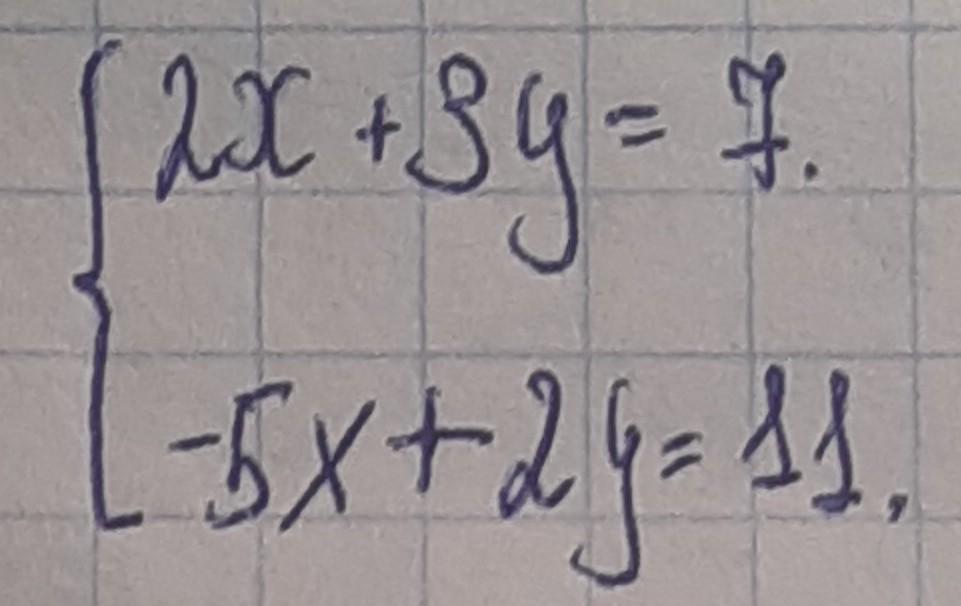 2x + 3y = 7.
-5x + 2y = 11,